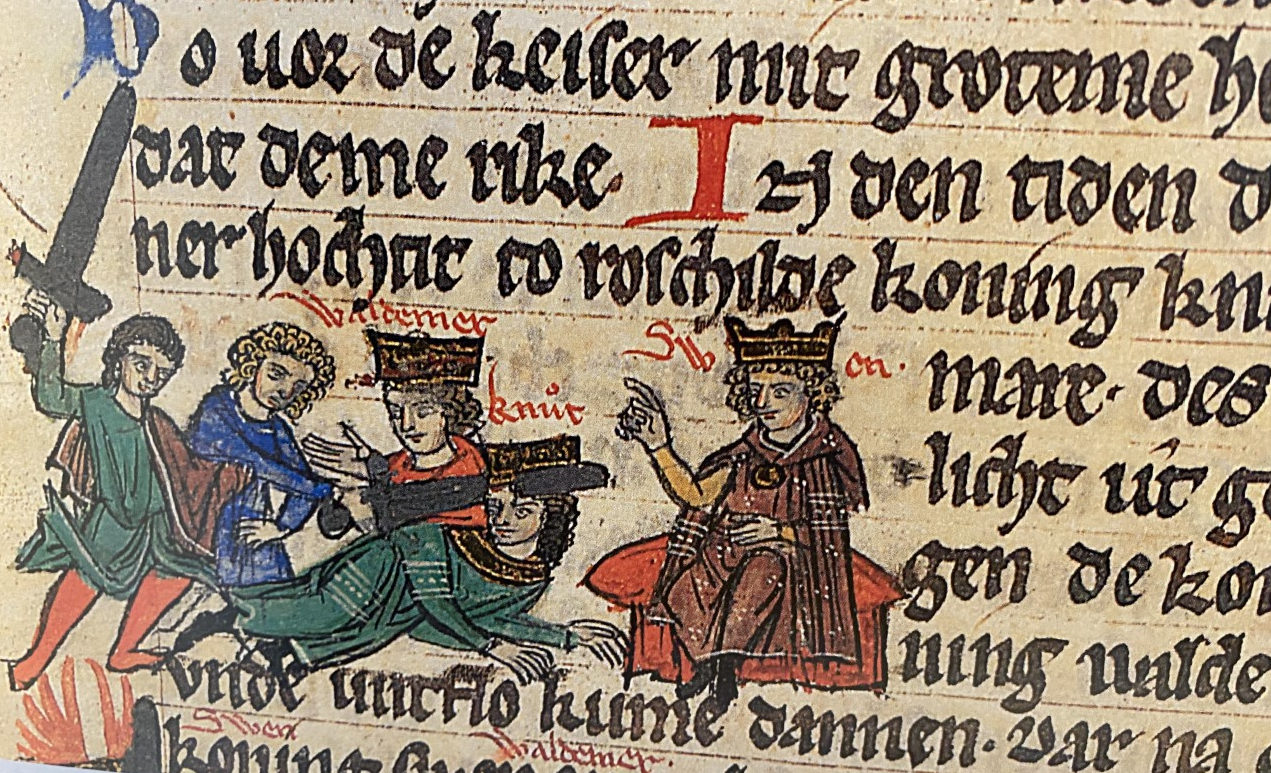 Do uor de keiser mit groteme he
dat deme rike. In den tiden d
ner hochtit to roschilde koning knu
Waldemer
knut
Sw en.
mare. des
licht ut ge
gen de kon
ning walde
vnde untflo kume dannen. Dar na
Swen Waldemer.
koning